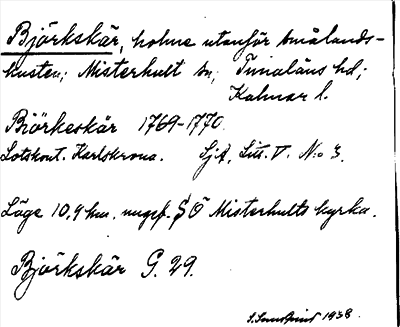 Björkskär, holme utanför Smålands-
kusten; Misterhult sn, Tunaläns hd;
Kalmar l.
Biörkeskär 1769-1770.
Lotskont. Karlskrona. Sjf, Litt. V. N:o 3.
Läge 10,9 km. ungef. SÖ Misterhults kyrka.
Björkskär G. 29.
1938